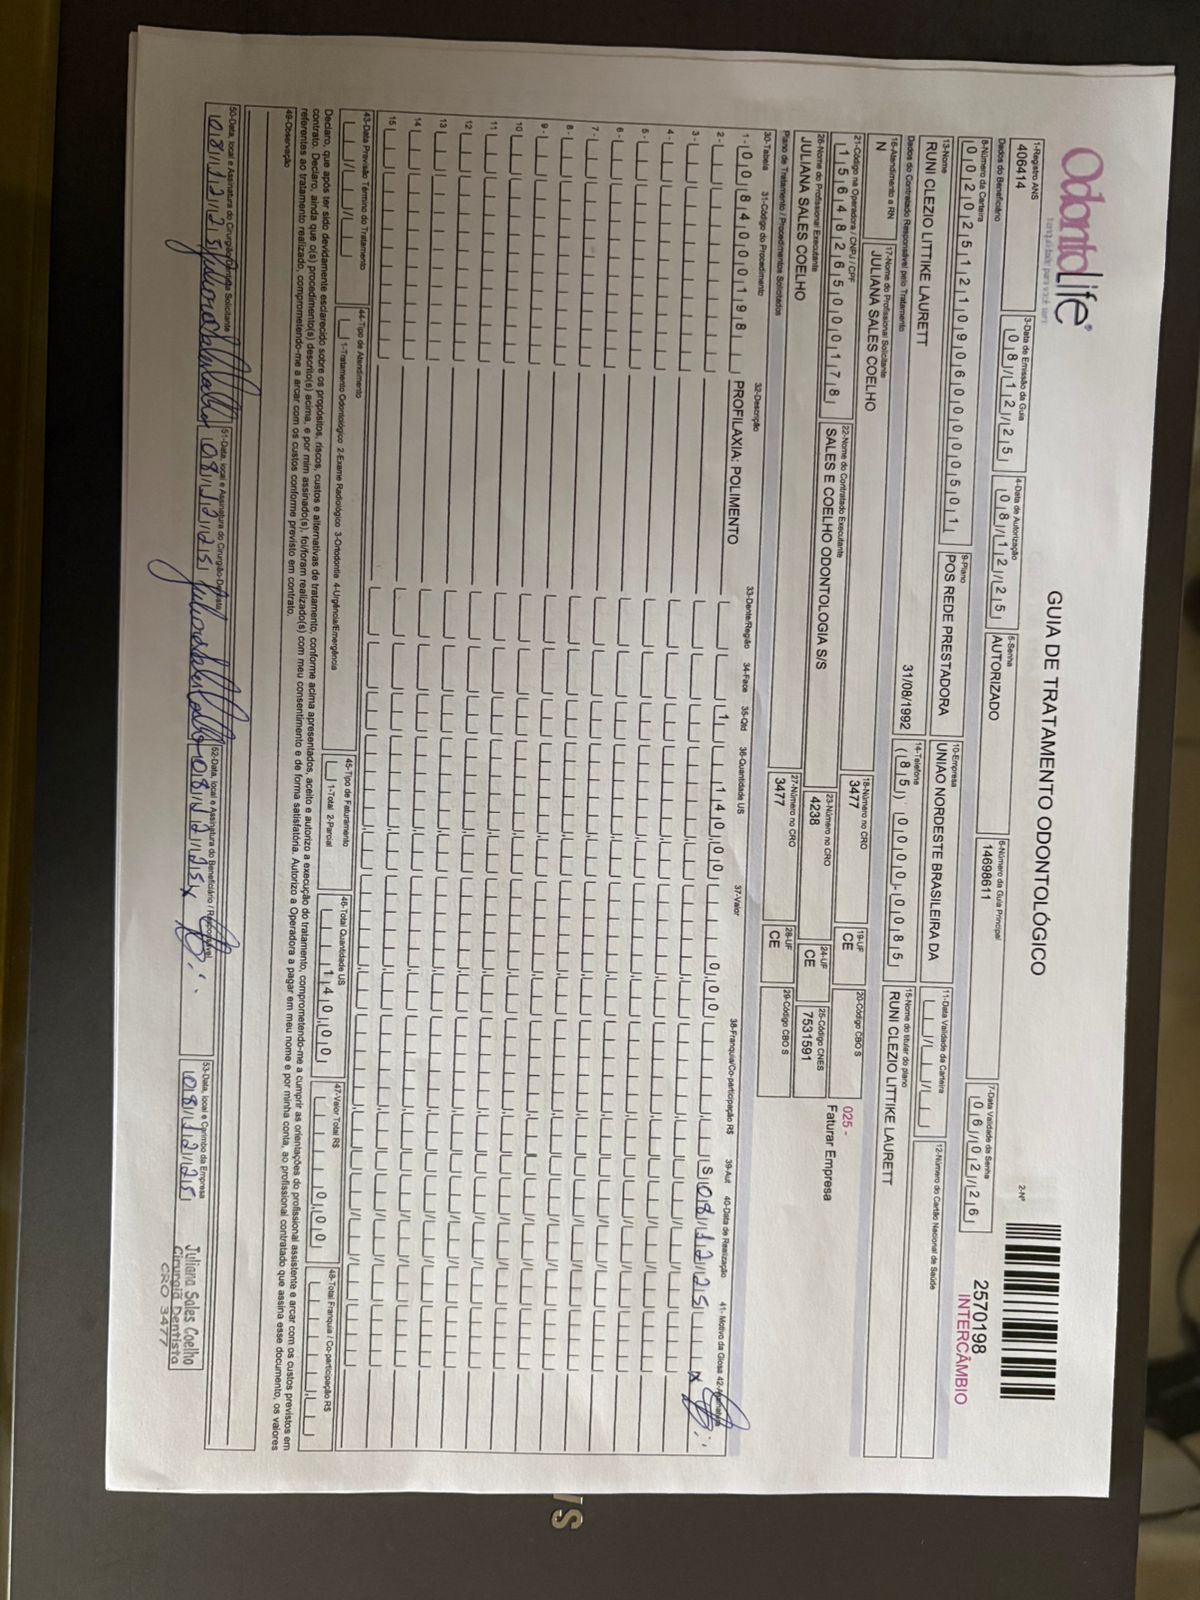 OdontoLife®
tranquilidade para você sorrir
GUIA DE TRATAMENTO ODONTOLÓGICO
2-Nº
2570198
INTERCÂMBIO
1-Registro ANS
406414
3-Data de Emissão da Guia
08/12/25
4-Data de Autorização
08/12/25
5-Senha
AUTORIZADO
6-Número da Guia Principal
14698611
7-Data Validade da Senha
06/02/26
Dados do Beneficiário
8-Número da Carteira
00202512109060000000501
9-Plano
POS REDE PRESTADORA
10-Empresa
UNIAO NORDESTE BRASILEIRA DA
11-Data Validade da Carteira
12-Número do Cartão Nacional de Saúde
13-Nome
RUNI CLEZIO LITTIKE LAURETT
31/08/1992
14-Telefone
(85) 0000-0085
15-Nome do titular do plano
RUNI CLEZIO LITTIKE LAURETT
Dados do Contratado Responsável pelo Tratamento
16-Atendimento a RN
N
17-Nome do Profissional Solicitante
JULIANA SALES COELHO
18-Número no CRO
3477
19-UF
CE
20-Código CBO S
025 -
Faturar Empresa
21-Código na Operadora / CNPJ / CPF
15648265000178
22-Nome do Contratado Executante
SALES E COELHO ODONTOLOGIA S/S
23-Número no CRO
4238
24-UF
CE
25-Código CNES
7531591
26-Nome do Profissional Executante
JULIANA SALES COELHO
27-Número no CRO
3477
28-UF
CE
29-Código CBO S
Plano de Tratamento / Procedimentos Solicitados
30-Tabela 31-Código do Procedimento 32-Descrição 33-Dente/Região 34-Face 35-Qtd 36-Quantidade US 37-Valor 38-Franquia/Co-participação R$ 39-Aut 40-Data de Realização 41- Motivo da Glosa 42-Assinatura
1- 00 84000198 PROFILAXIA: POLIMENTO 1 14000 0,00 S 08/12/25 x
2-
3-
4-
5-
6-
7-
8-
9-
10
11
12
13
14
15
43-Data Previsão Término do Tratamento
44-Tipo de Atendimento
1-Tratamento Odontológico 2-Exame Radiológico 3-Ortodontia 4-Urgência/Emergência
45-Tipo de Faturamento
1-Total 2-Parcial
46-Total Quantidade US
140,00
47-Valor Total R$
0,00
48-Total Franquia / Co-participação R$
Declaro, que após ter sido devidamente esclarecido sobre os propósitos, riscos, custos e alternativas de tratamento, conforme acima apresentados, aceito e autorizo a execução do tratamento, comprometendo-me a cumprir as orientações do profissional assistente e arcar com os custos previstos em
contrato. Declaro, ainda que o(s) procedimento(s) descrito(s) acima, e por mim assinado(s), foi/foram realizado(s) com meu consentimento e de forma satisfatória. Autorizo a Operadora a pagar em meu nome e por minha conta, ao profissional contratado que assina esse documento, os valores
referentes ao tratamento realizado, comprometendo-me a arcar com os custos conforme previsto em contrato.
49-Observação
50-Data, local e Assinatura do Cirurgião-Dentista Solicitante
08/12/25
51-Data, local e Assinatura do Cirurgião-Dentista
08/12/25
52-Data, local e Assinatura do Beneficiário / Responsável
08/12/25 x
53-Data, local e Carimbo da Empresa
08/12/25
Juliana Sales Coelho
Cirurgiã Dentista
CRO 3477